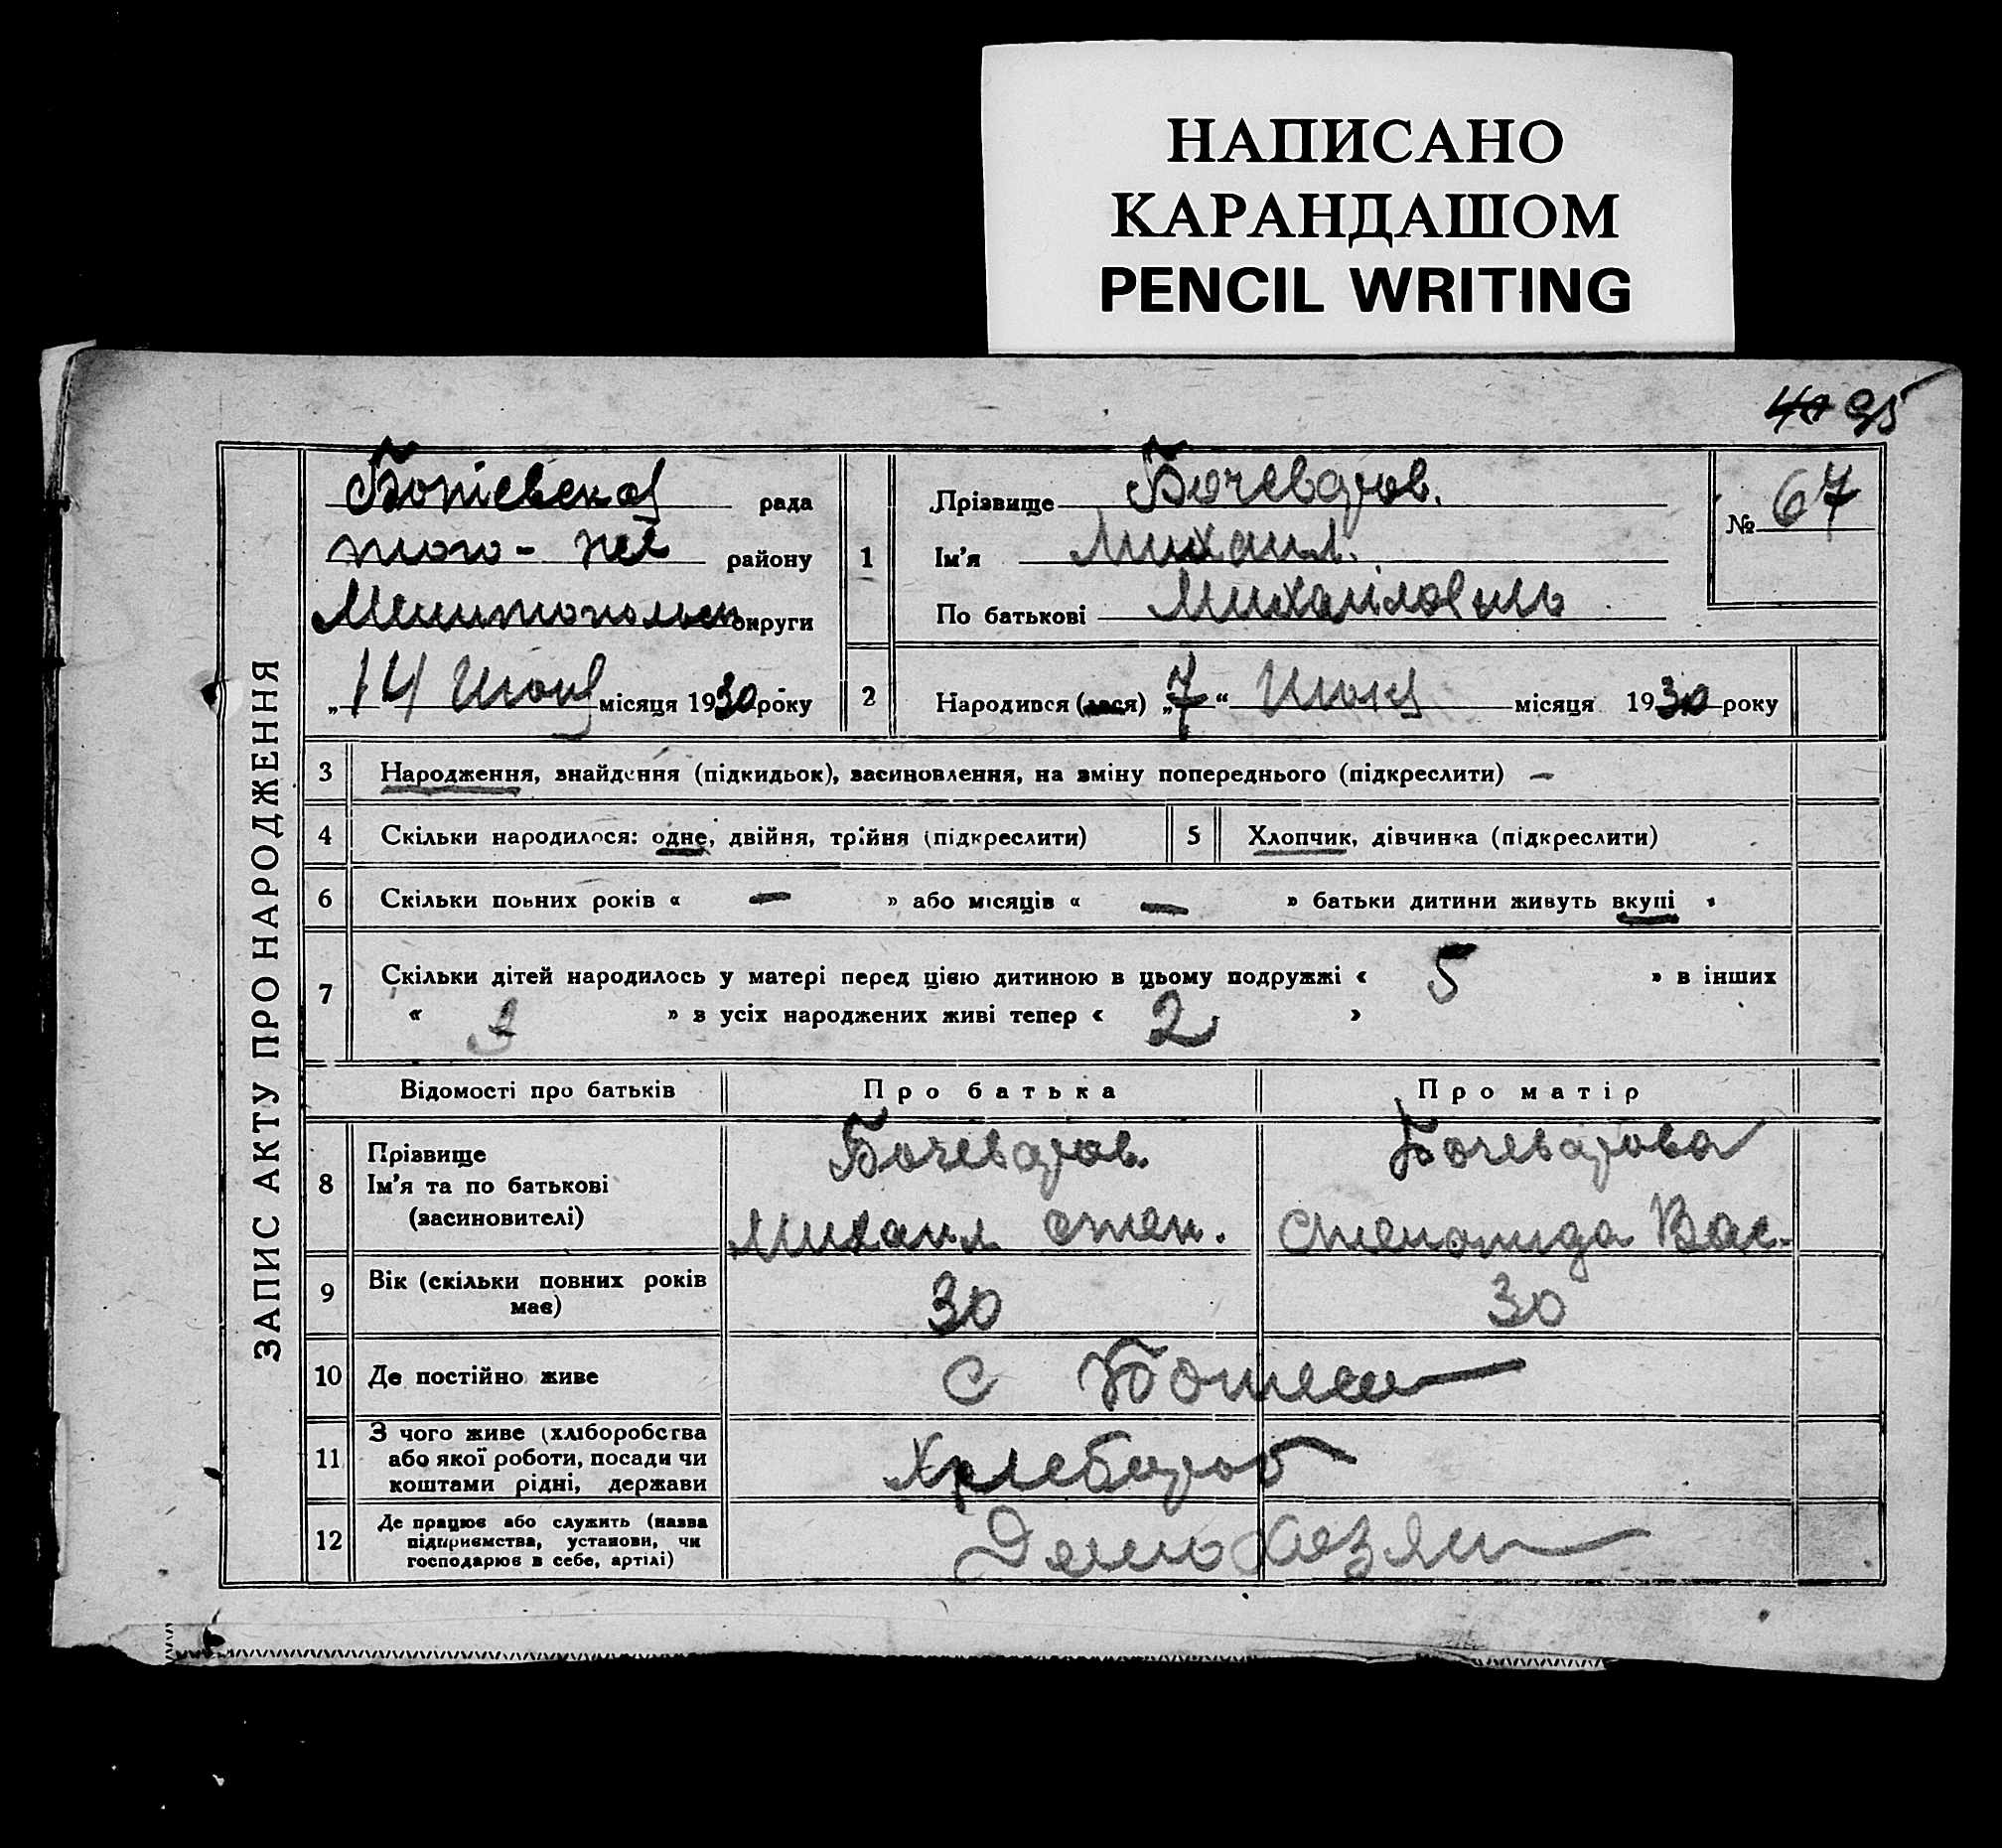 НАПИСАНО
КАРАНДАШОМ
PENCIL WRITING
40 95
ЗАПИС АКТУ ПРО НАРОДЖЕННЯ
Ботіевская рада
того-же району
Мелитопольск округи
„14 Июня місяця 1930 року
1
Прізвище Бочеваров.
Ім'я Михаил.
По батькові Михаилович
№ 67
2
Народився (лася) „7“ Июня місяця 1930 року
3 Народження, знайдення (підкидьок), васиновлення, на зміну попереднього (підкреслити) —
4 Скільки народилося: одне, двійня, трійня (підкреслити)
5 Хлопчик, дівчинка (підкреслити)
6 Скільки повних років « — » або місяців « — » батьки дитини живуть вкупі
7 Скільки дітей народилось у матері перед цією дитиною в цьому подружжі « 5 » в інших
« » в усіх народжених живі тепер « 2 »
Відомості про батьків Про батька Про матір
8 Прізвище
Ім'я та по батькові
(засиновителі)
Бочеваров.
Михаил Степ.
Бочеварова
Степонида Вас.
9 Вік (скільки повних років
має)
30 30
10 Де постійно живе
с Ботиеві
11 З чого живе (хліборобства
або якої роботи, посади чи
коштами рідні, держави
Хлебороб
12 Де працює або служить (назва
підприємства, установи, чи
господарює в себе, артілі)